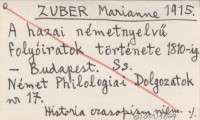 ZUBER Marianne 1915.
A hazai németnyelvű
folyóiratok története 1810-ig.
— Budapest. S3.
Német Philologiai Dolgozatok
nr 17.
Historia czasopism niem.